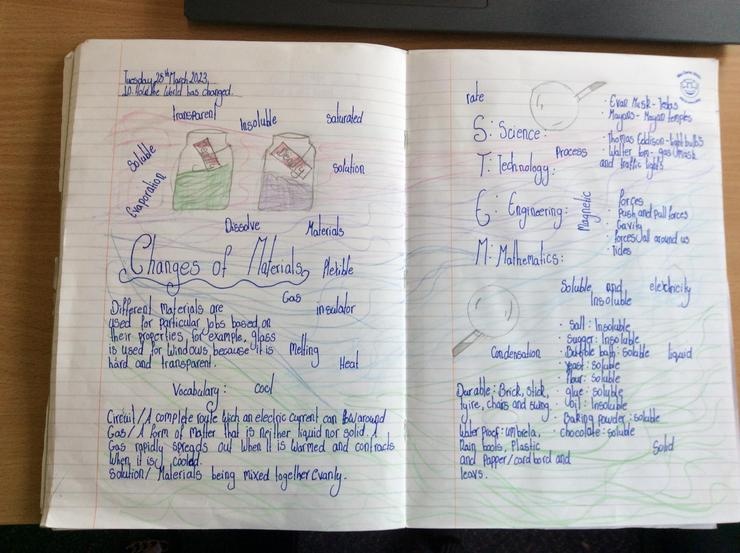 Tuesday 28th March 2023
LO: How the World has changed.
transparent
Insoluble
saturated
Soluble
solation
Evaporation
Dissolve
Materials
Changes of Materials
Flexible
Gas
insulator
Different materials are
used for particular jobs based on
their properties, for example, glass
is used for windows because it is
hard and transparent.
Melting
Heat
Vocabulary:
cool
Circuit/A complete route wich an electric current can flow around
Gas/A form of matter that is neither liquid nor solid. A
Gas rapidly spreads out when it is warmed and contracts
when it is cooled.
Solution/ Materials being mixed together evanly.
rate
Evan Musk-Teslas
Mayans-Mayan temples
S: Science:
Thomas Eddison-light bulbs
Process
Walter
gas
and traffic lights
T: Technology:
E: Engineering:
Magnetic
forces
Push and pull forces
Gavity
forces all around us
Tides
M: Mathematics:
Soluble and
Insoluble
electricity
Salt: Insoluble
Sugger: Insoluble
Bubble bath: soluble
liquid
Condensation
Yeast: soluble
flour: soluble
glue: soluble
oil: Insoluble
Baking powder: soluble
chocolate: soluble
Durable: Brick, stick,
tyire, chairs and swing.
Water proof: umbrela,
Rain boots, Plastic
and Papper/cardbord and
leavs.
Solid